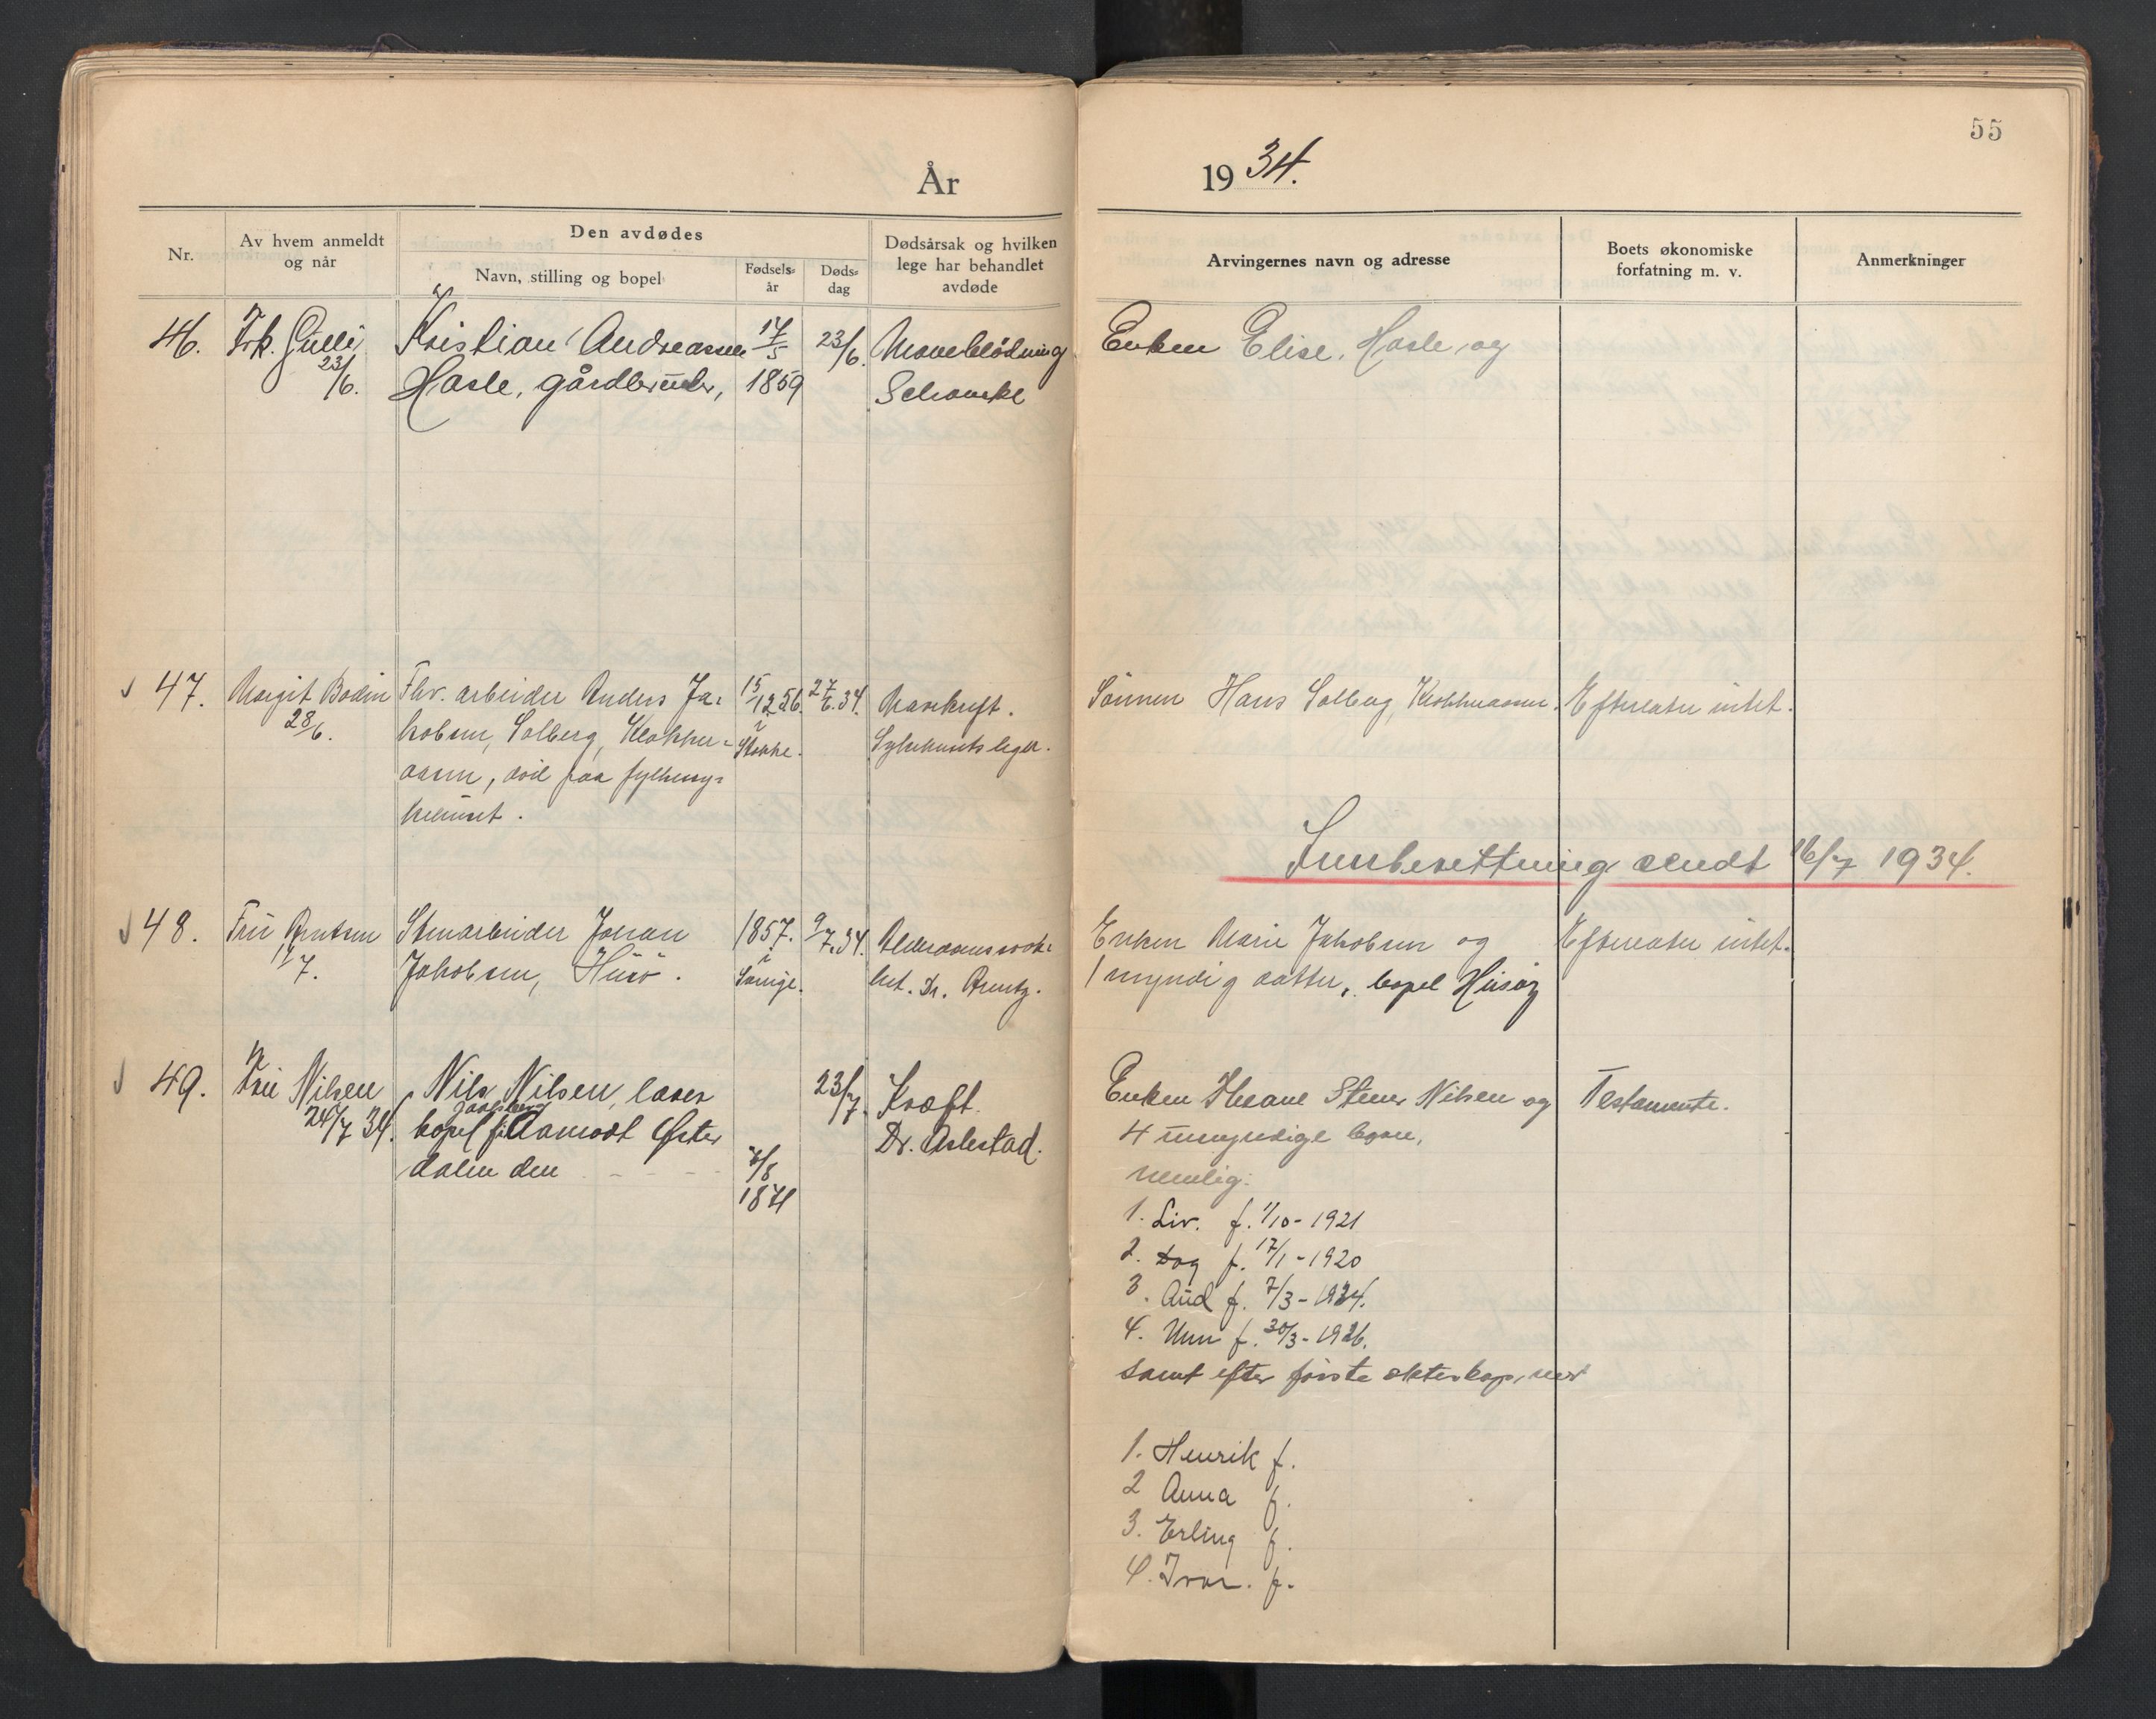 55
År 1934.
Nr.
Av hvem anmeldt
og når
Den avdødes
Navn, stilling og bopel
Fødsels-
år
Døds-
dag
Dødsårsak og hvilken
lege har behandlet
avdøde
Arvingernes navn og adresse
Boets økonomiske
forfatning m. v.
Anmerkninger
46.
Frk. Gulli
23/6.
Kristian Andreassen
Hasle, gårdbruker,
17/5
1859
23/6.
Maveblødning
Schanche
Enken Elise, Hasle, og
47.
Margit Bodin
28/6.
Fhv. arbeider Anders Ja-
kobsen, Solberg, Klopper-
aasen, død paa fylkessy-
kehuset.
15/12 56.
i
Stokke.
27/6.34.
Mavekreft.
Sykehusets leger.
Sønnen Hans Solberg, Kloppeaasen.
Efterlater intet.
Innberettning sendt 16/7 1934.
48.
Fru Berntsen
/7.
Stenarbeider Johan
Jakobsen, Husø.
1857.
i
Sverige.
9/7.34.
Alderdomssvak-
het. Dr. Arentz.
Enken Marie Jakobsen og
1 myndig datter, bopel Husøy
Efterlater intet.
49.
Fru Nilsen
24/7 34.
Nils Nilsen, laser
bopel f. i Aamodt Øster
dalen den - - - -
7/8
1871
23/7.
Kræft.
Dr. Aslestad.
Enken Stener Nilsen og
4 umyndige barn,
nemlig:
1. Liv. f. 1/10 - 1921
2. Dag f. 17/1 - 1920
3. Aud f. 7/3 - 1924.
4. Unn f. 30/3 - 1926.
samt efter første ekteskap, med
1. Henrik f.
2 Anna f.
3. Erling f.
4. Ivar. f.
Testamente.